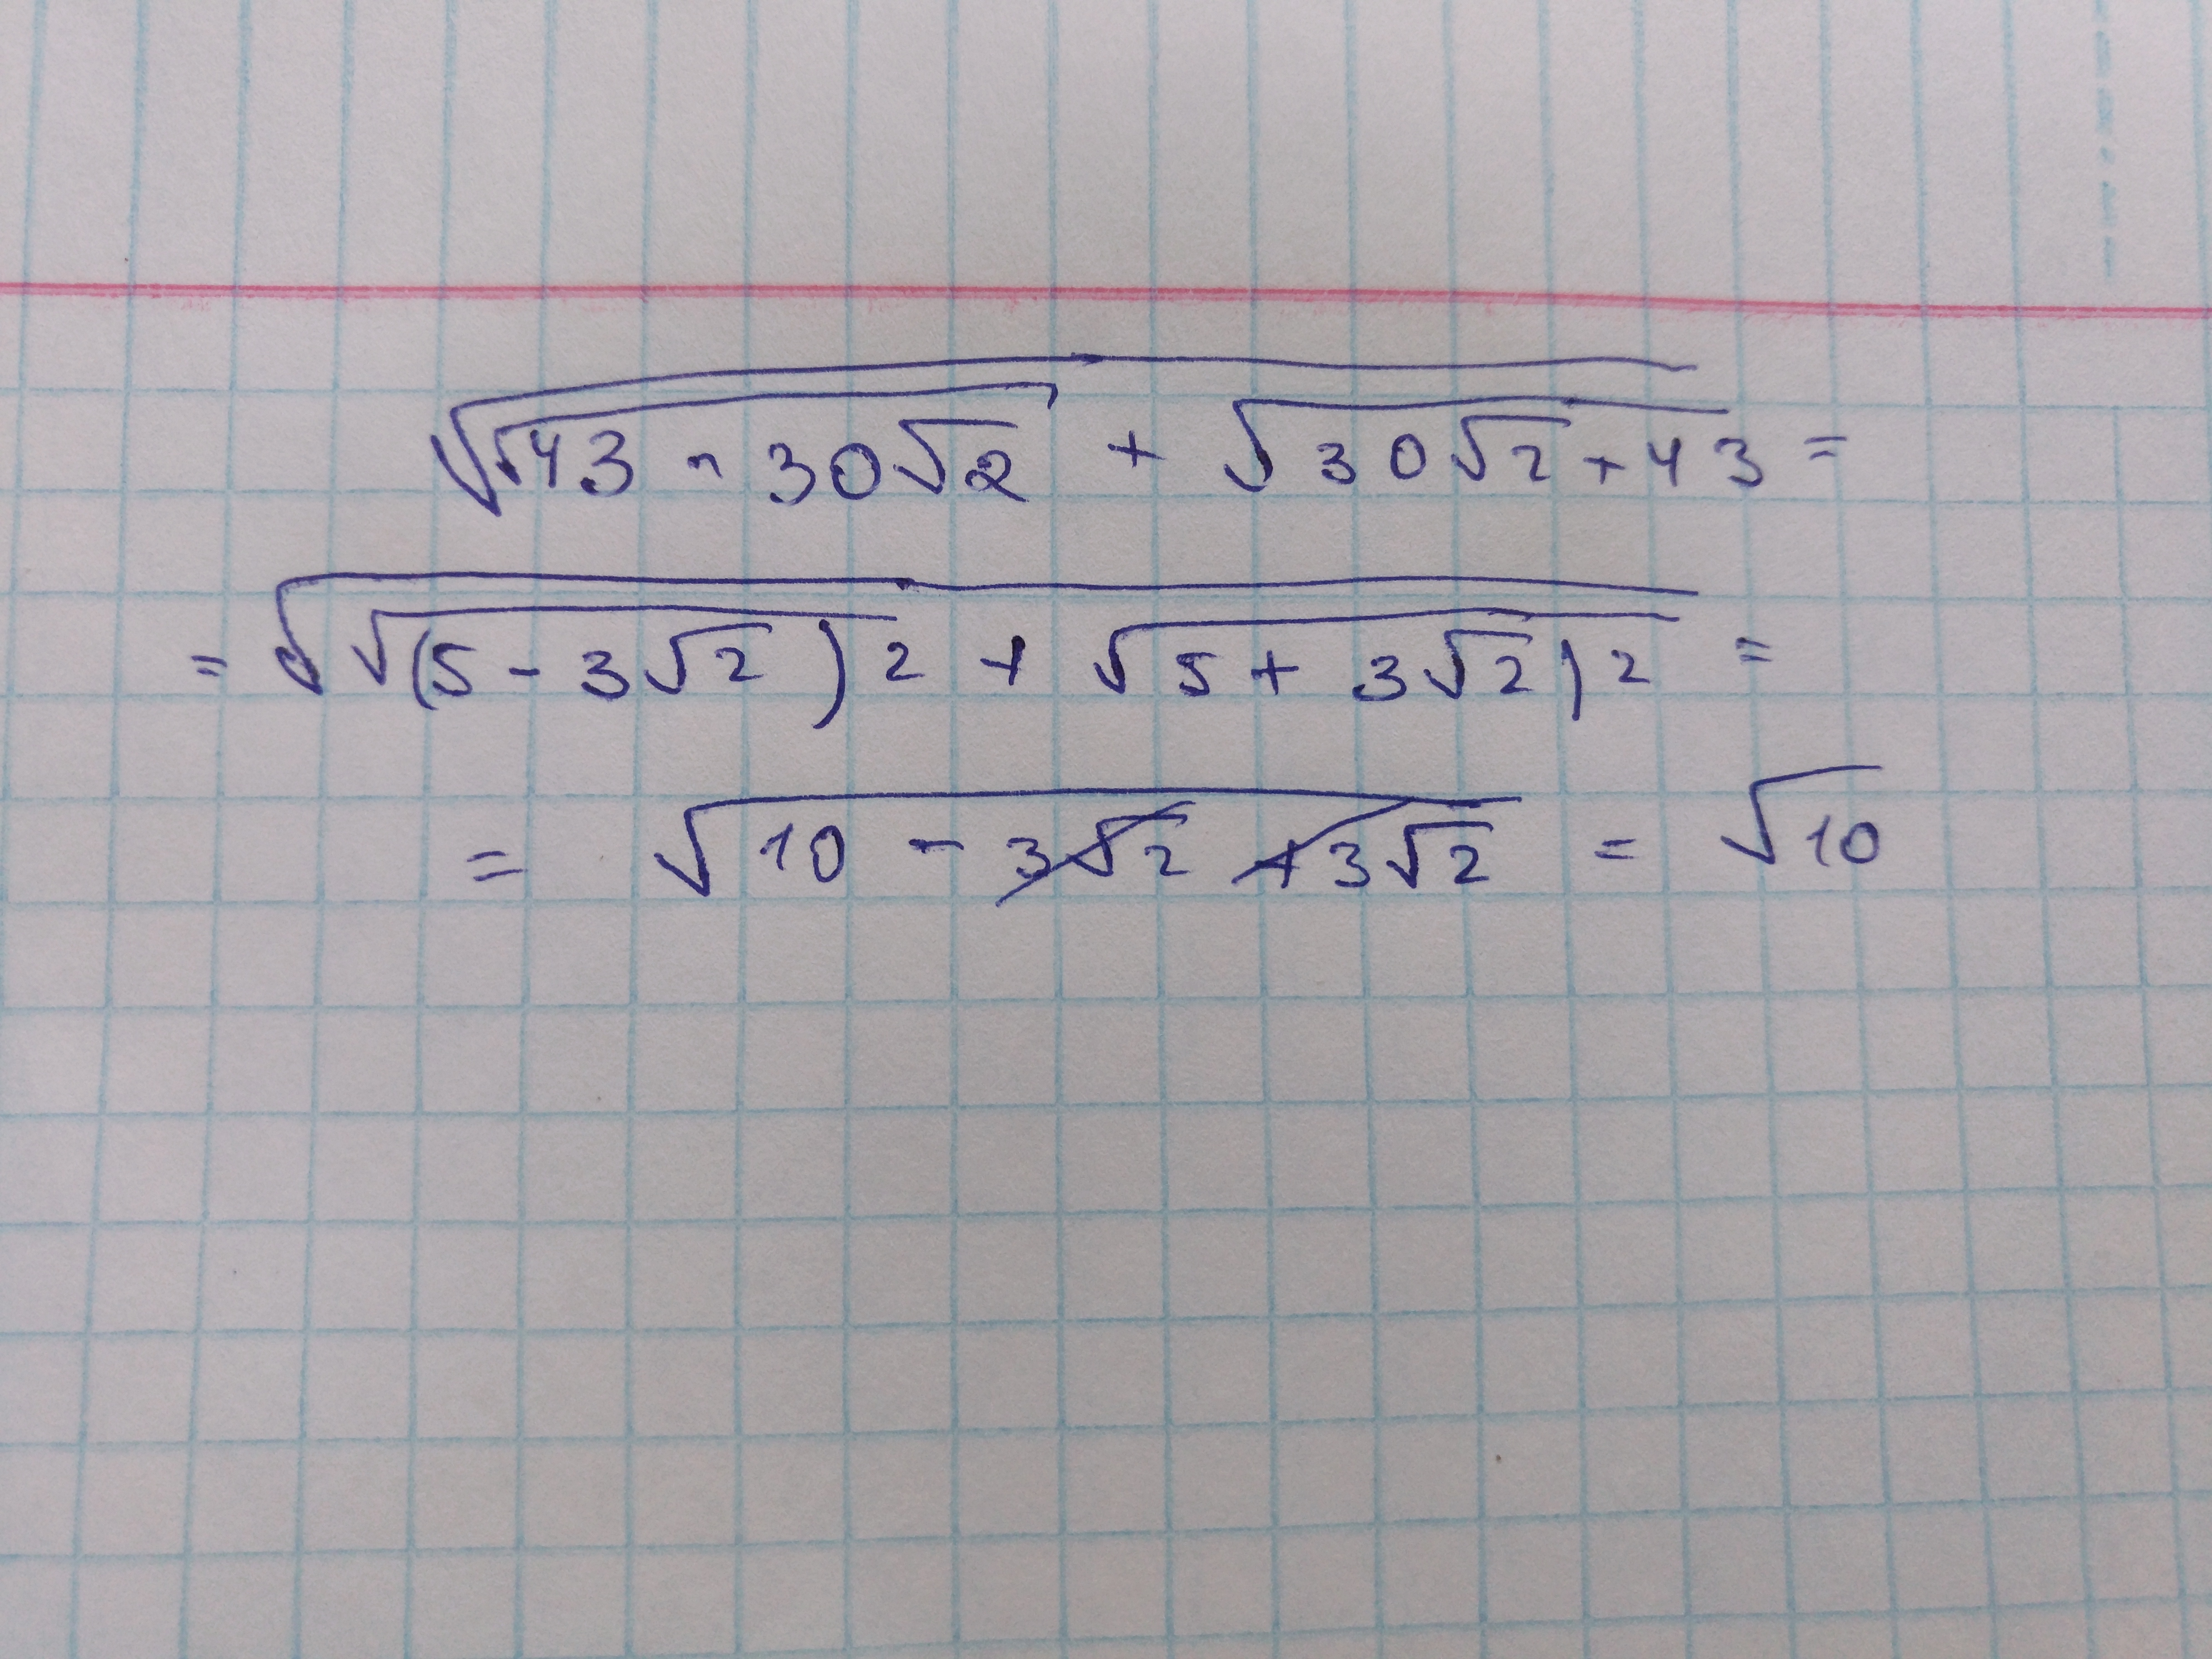 √(√(43 - 30√2) + √(30√2 + 43)) =
= √(√((5 - 3√2)2) + √(5 + 3√2)2) =
= √(10 - 3√2 + 3√2) = √10